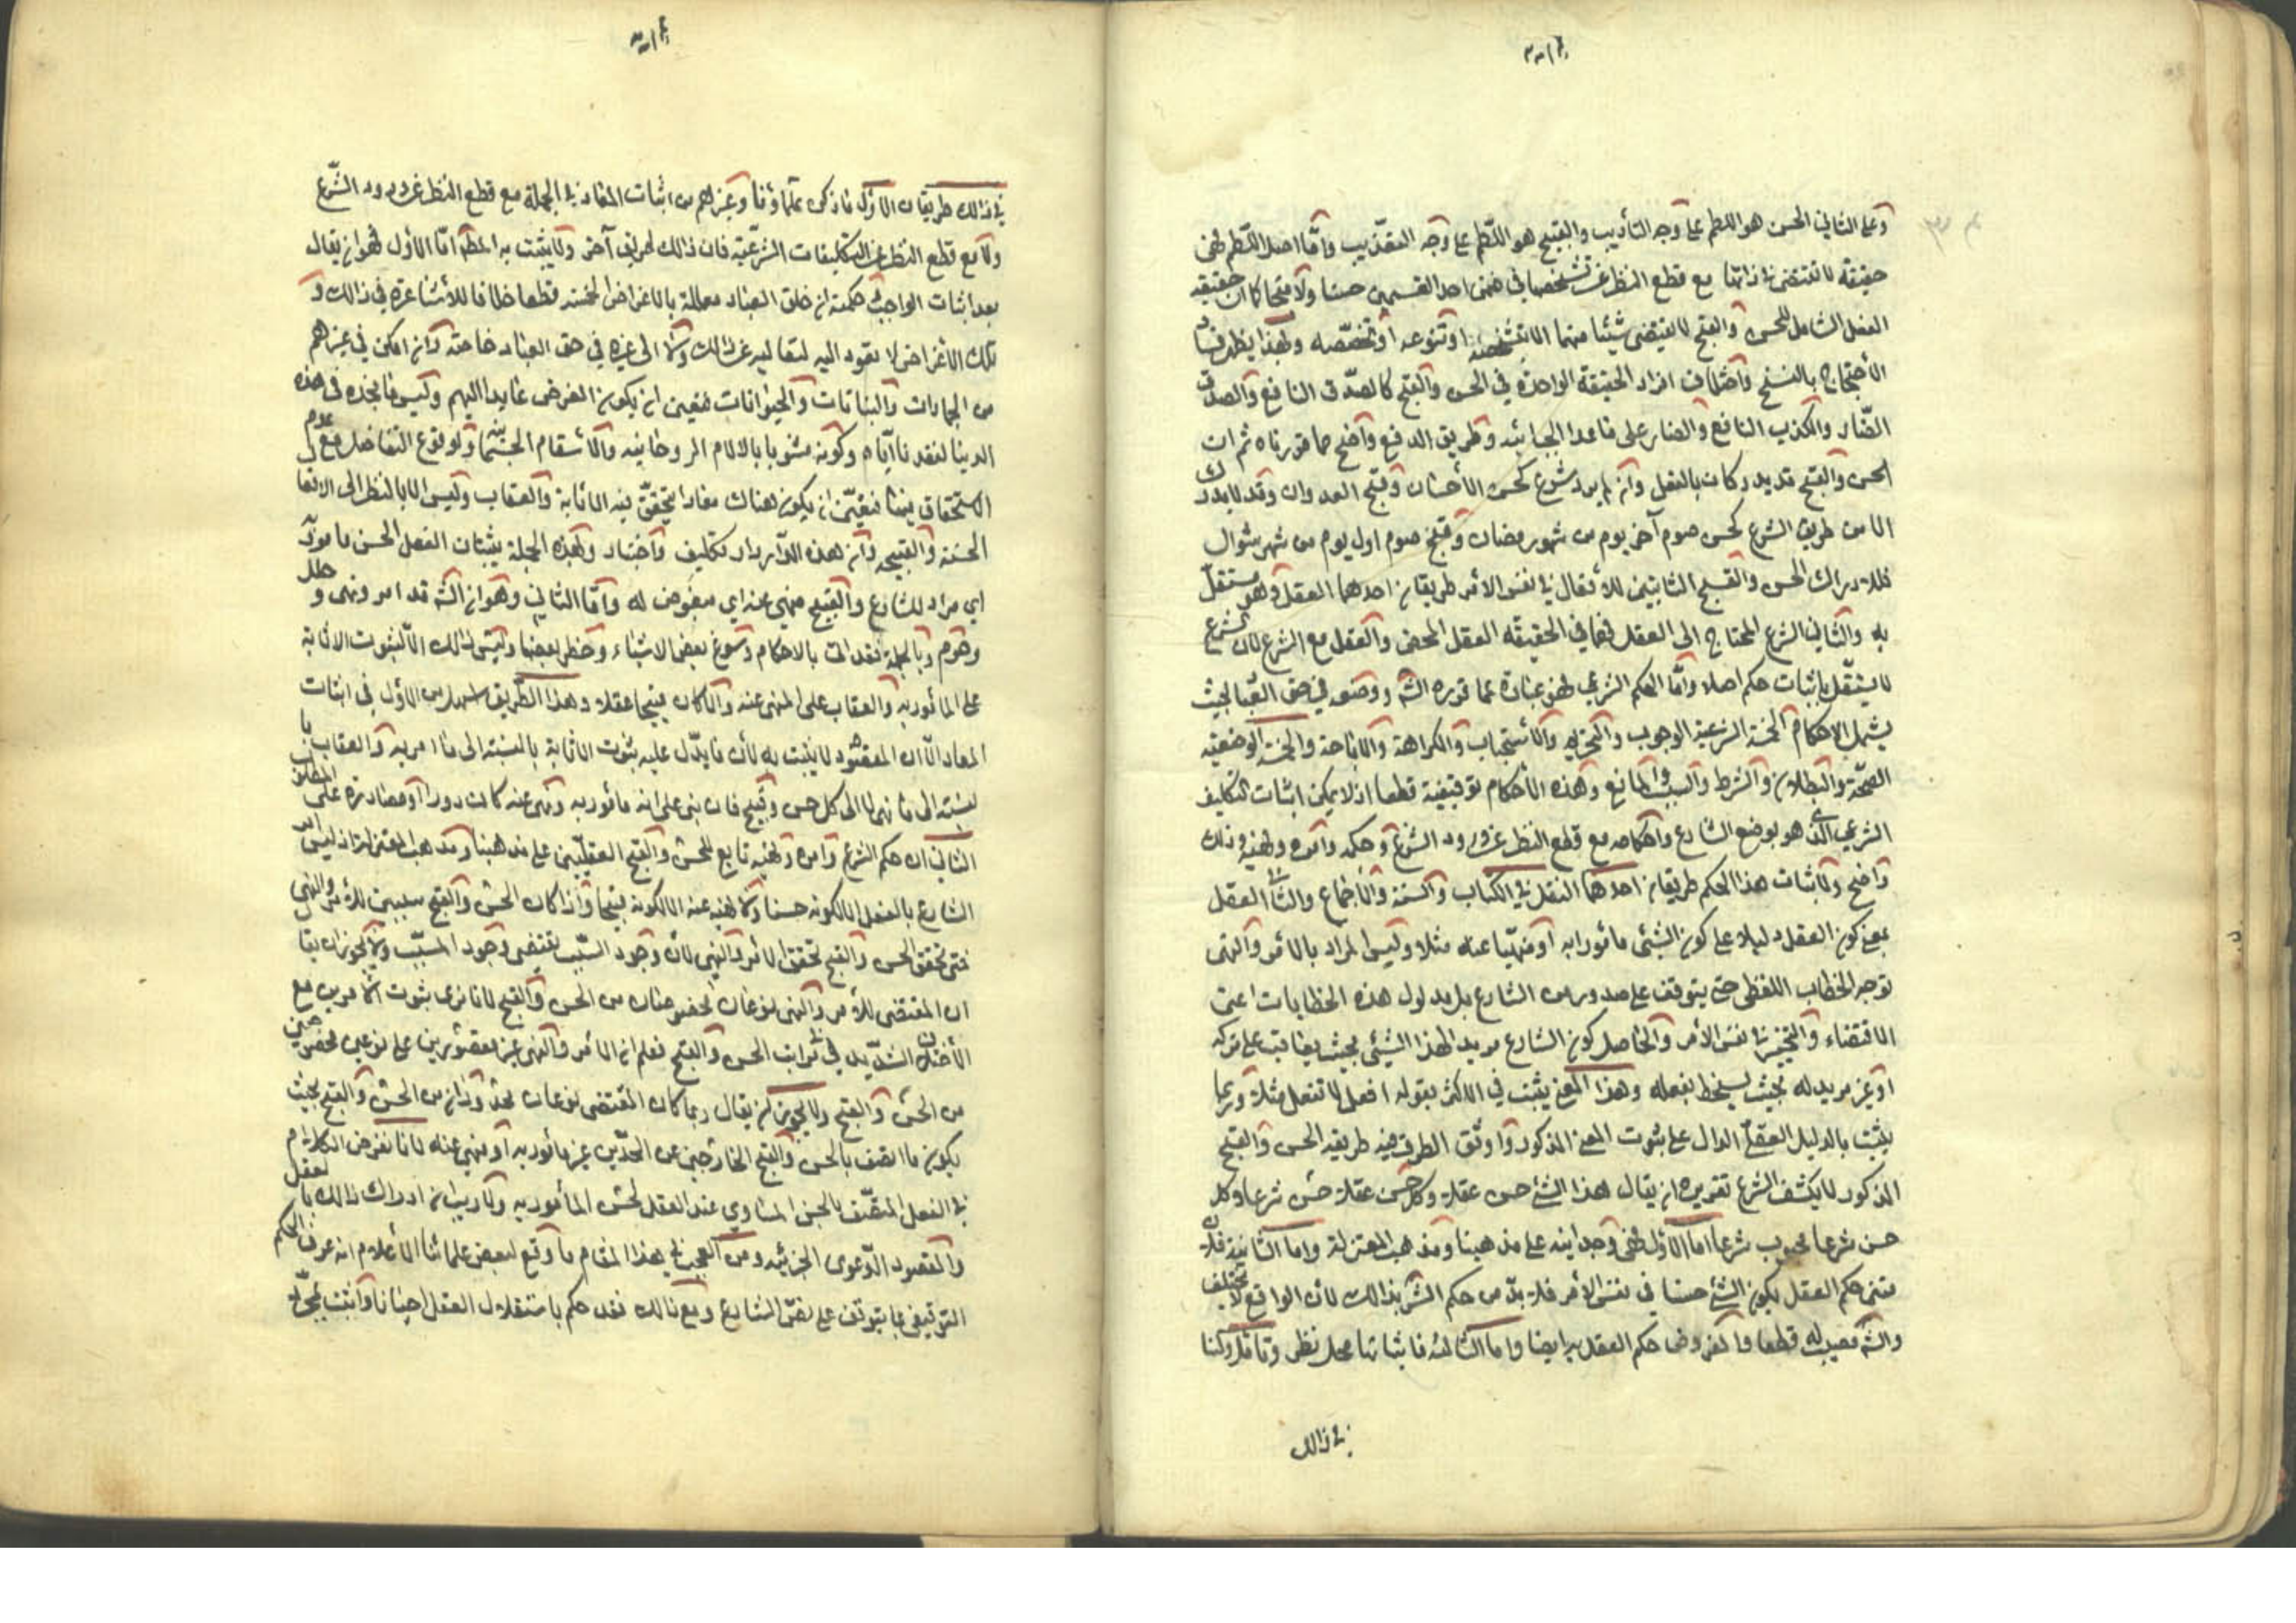 وعلى الثاني الحسن هو اللطم على وجه التأديب والقبيح هو اللطم على وجه التعذيب وامّا اصل اللّطم فهى
حقيقة لا تقتضى فى ذاتها مع قطع النظر عن تشخصها فى ضمن احد القسمين حسنا ولا قبحا كما ان حقيقة
الفعل الشامل للحسن والقبح لا يقتضى شيئا منهما الا بتشخصه او تنوعه او تخصّصه وبهذا يظهر فساد
الاحتجاج بالنسخ واختلاف افراد الحقيقة الواحدة فى الحسن والقبح كالصدق النافع والصدق
الضّار والكذب النافع والضار على ما عدا الجبائيه وطريق الدفع واضح مما قررناه ثم ان
الحسن والقبح قد يدركان بالعقل وان لم يرد شرع كحسن الأحسان وقبح العدوان وقد لا يدرك
الا من طريق الشرع كحسن صوم آخر يوم من شهر رمضان وقبح صوم اول يوم من شهر شوال
فلادراك الحسن والقبح الثابتين للأفعال فى نفس الأمر طريقان احدهما العقل وهو مستقل
به والثانى الشرع المحتاج الى العقل فهما فى الحقيقة العقل المحض والعقل مع الشرع لان الشرع
لا يستقل باثبات حكم اصلا وأمّا الحكم الشرعى فهى عبارة عما قرره الشّه ووضعه فى حق العباد بحيث
يشمل الاحكام الخمسة الشرعية الوجوب والتحريم والأستحباب والكراهة والاباحة والخمسة الوضعيّه
الصحّة والبطلان والشرط والسبب والمانع وهذه الأحكام توقيفية قطعا اذ لا يمكن اثبات التكليف
الشرعى الذى هو بوضع الشارع واحكامه مع قطع النظر عن ورود الشرع وحكمه وأمره ونهيه وذلك
واضح ولاثبات هذا الحكم طريقان احدهما النقل فى الكتاب والسنة والأجماع والثانى العقل
بمعنى كون العقل دليلا على كون الشئى مأمورا به او منهيّا عنه مثلا وليس المراد بالأمر والنهى
توجه الخطاب اللفظى حتى يتوقف على صدوره من الشارع بل مدلول هذه الخطابات اعنى
الاقتضاء والتخيير فى نفس الأمر والحاصل كون الشارع مريدا لهذا الشيئى بحيث يعاقب على تركه
او غير مريد له بحيث يسخط بفعله وهذا المعنى يثبت فى الاكثر بقوله افعل لا تفعل مثلا وربما
يثبت بالدليل العقلى الدال على ثبوت المعنى المذكور واوثق الطرق فيه طريقه الحسن والقبح
المذكور لا يكشف الشرع تقريره ان يقال هذا الشئ حسن عقلا وكل حسن عقلا حسن شرعا وكل
حسن شرعا محبوب شرعا اما الأول فهى وجدانيه على مذهبنا ومذهب المعتزلة واما الثانية فلان
متى حكم العقل بكون الشئ حسنا فى نفس الأمر فلا بدّ من حكم الشرع بذالك لأن الواقع لا يختلف
والشّه مصيب له قطعا والمفروض حكم العقل به ايضا واما الثالثة فاثباتها محل نظر وتأمل ولنا
فى ذالك
فى ذالك طريقان الأول ما ذكره علماؤنا وغيرهم من اثبات المعاد فى الجملة مع قطع النظر عن ورود الشّرع
ولا مع قطع النظر عن التكليفات الشرعيّة فان ذالك طريق آخر ولا يثبت به المط امّا الأول فهو ان يقال
بعد اثبات الواجب وحكمته ان خلق العباد معللة بالأغراض الحسنه قطعا خلافا للأشاعرة فى ذالك و
تلك الأغراض لا يعود اليه لتعاليه عن ذلك ولا الى غيره فى حق العباد خاصة وان امكن فى غيرهم
من الجمادات والنباتات والحيوانات فتعين ان يكون الغرض عايدا اليهم وليس ما نجده فى هذه
الدنيا لفقدنا ايّاه وكونه مشوبا بالالام الروحانيه والأسقام الجسميّة ولوقوع التفاضل مع عدم
الاستحقاق فيها فتعيّن ان يكون هناك معاد يتحقق فيه الاثابة والعقاب وليس الا بالنظر الى الافعال
الحسنة والقبيحه وان هذه الدّار دار تكليف واختبار وبهذه الجملة يثبت ان الفعل الحسن مأمور به
اي مراد للشارع والقبيح منهى عنه اي مبغوض له وامّا الثانى وهو ان الشّه قد امر ونهى وحلل
وحرم وبالجملة فقد اتى بالاحكام وسوغ بعض الاشياء وحظر بعضها وليس ذالك الّا لثبوت الاثابة
على المأمور به والعقاب على المنهى عنه والا كان قبيحا عقلا وهذا الطريق اسهل من الأول فى اثبات
المعاد الّا ان المقصود لا يثبت به لأن ما يدلّ عليه ثبوت الاثابة بالنسبة الى ما امر به والعقاب با
لنسبة الى ما نهى لا الى كل حسن وقبيح فان بنى على انه مأمور به ونهى عنه كانت دورا او مصادرة على المطلوب
الثانى ان حكم الشرع وامره ونهيه تابع للحسن والقبح العقليّين على مذهبنا ومذهب المعتزلة اذ ليس امر
الشارع بالفعل الا لكونه حسنا ولا نهيه عنه الا لكونه قبيحا واذا كان الحسن والقبح سببين للأمر والنهى
فمتى تحقق الحسن والقبح تحقق الأمر والنهى لأن وجود السّبب يقتضى وجود المسبّب ولا يجوز ان يقال
ان المقتضى للأمر والنهى نوعان مخصوصان من الحسن والقبح لانا نرى ثبوت الأمرين مع
الأختلاف الشديد فى مراتب الحسن والقبح فعلم ان الأمر والنهى غير مقصورين على نوعين مخصوصين
من الحسن والقبح ولا يجوز ان يقال ربما كان المقتضى نوعان محدودان من الحسن والقبح بحيث
يكون ما اتصف بالحسن والقبح الخارجين عن الحدّين غير مأمور به او منهى عنه لانا نفرض الكلام
فى الفعل المتصّف بالحسن المساوي عند العقل لحسن المأمور به ولا ريب ان ادراك ذالك بالعقل
والمقصود الدّعوى الجزئيه ومن العجب فى هذا المقام ما وقع لبعض علمائنا الأعلام انه عرف الحكم
التوقيفى بما يتوقف على نصّ الشارع ومع ذالك فقد حكم باستقلال العقل احيانا واثبت بمجرّد